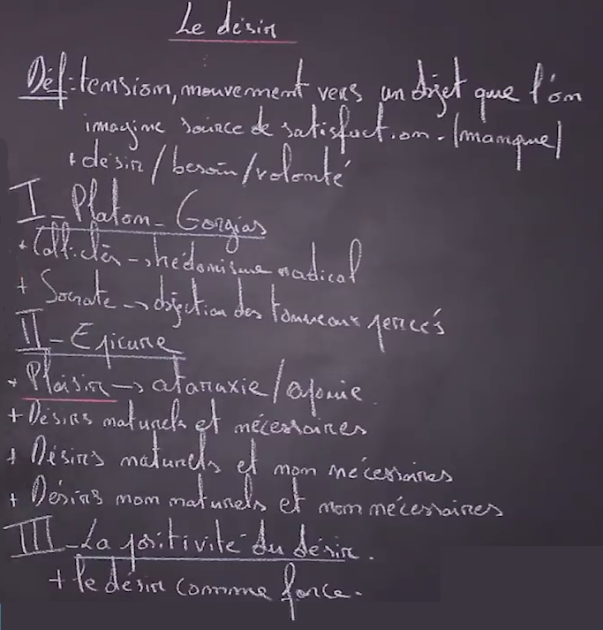 Le désir
Déf: tension, mouvement vers un objet que l'on
imagine source de satisfaction. (manque)
+ désir / besoin / volonté
I - Platon - Gorgias
+ Calliclès → hédonisme radical
+ Socrate → objection des tonneaux percés
II - Epicure
+ Plaisir → ataraxie / aponie
+ Désirs naturels et nécessaires
+ Désirs naturels et non nécessaires
+ Désirs non naturels et non nécessaires
III - La positivité du désir.
+ le désir comme force.